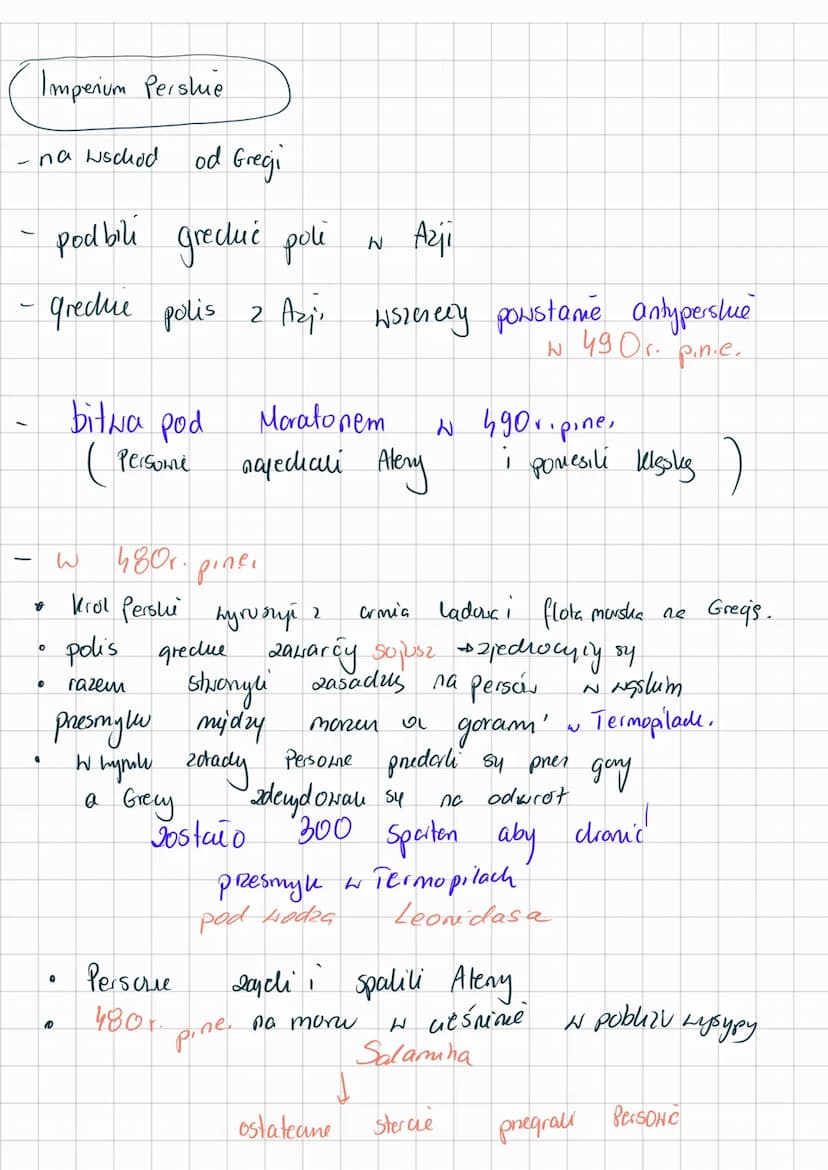 Imperium Perskie
- na wschód od Gregi
- podbili greckie poli w Azji
- greckie polis z Azji wszczęły powstanie antyperskie
w 490 r. p.n.e.
- bitwa pod Maratonem w 490 r. p.n.e.
( Persowie najechali Ateny i ponieśli klęskę )
- w 480 r. p.n.e.
• Król Perski wyruszył z armią lądową i flotą morską na Grecję.
• polis greckie zawarły sojusz → zjednoczyły się
• razem stworzyli zasadzkę na persów w wąskim
przesmyku między morzem a górami w Termopilach.
• W wyniku zdrady Persowie przedarli się przez góry
a Grecy zdecydowali się na odwrót
zostało 300 Spartan aby chronić
przesmyk w Termopilach
pod wodzą Leonidasa
• Persowie zajęli i spalili Ateny
• 480 r. p.n.e. na morzu w cieśninie w pobliżu wyspy
Salamina
↓
ostateczne starcie przegrali Persowie